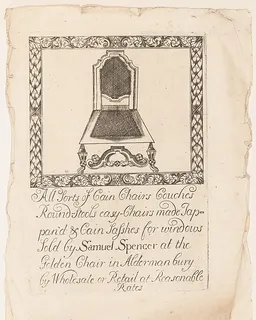 All Sorts of Cain Chairs Couches
Round stools easy-Chairs made Jap=
pan'd & Cain Sasshes for windows
Sold by Samuel Spencer at the
Golden Chair in Aldermanbury
by Wholesale or Retail at Reasonable
Rates